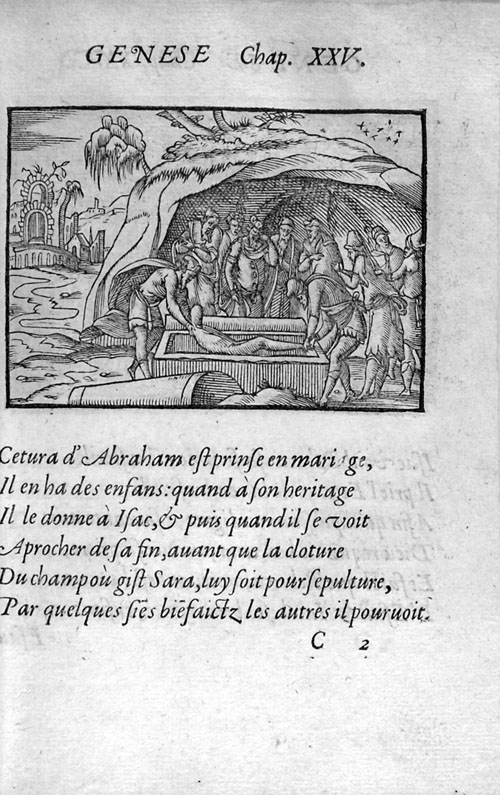 GENESE Chap. XXV.
Cetura d'Abraham est prinse en mariage,
Il en ha des enfans: quand à son heritage
Il le donne à Isac, & puis quand il se voit
Aprocher de sa fin, auant que la cloture
Du champ où gist Sara, luy soit pour sepulture,
Par quelques siẽs biẽfaictz les autres il pouruoit.
C 2